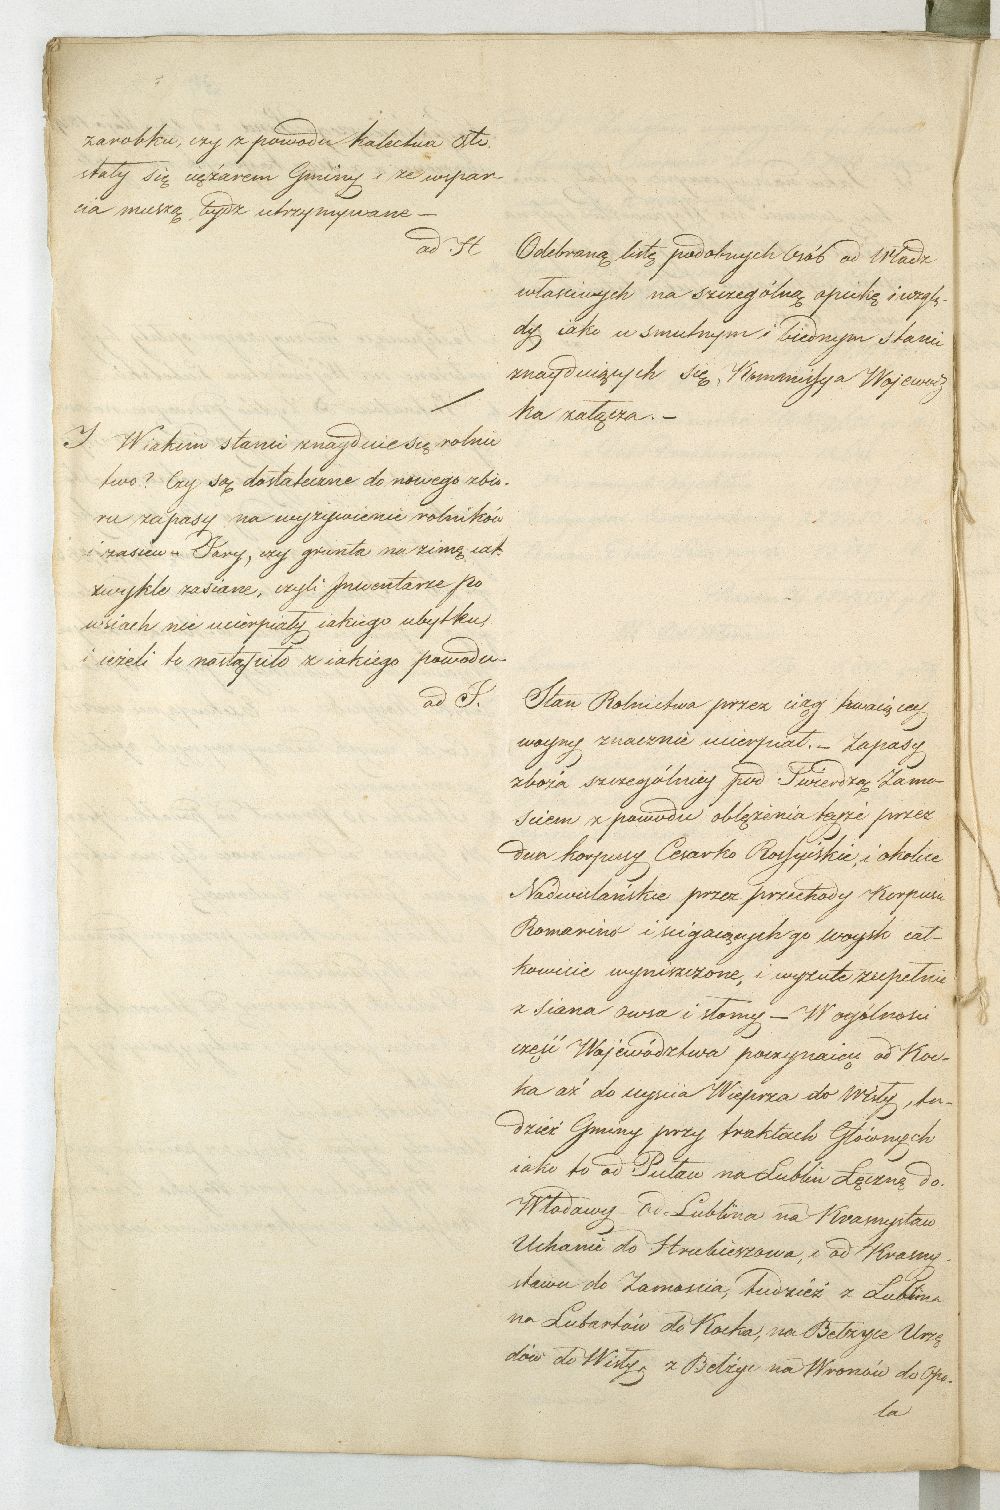 zarobku, czy z powodu kalectwa etc.
stały się ciężarem Gminy i ze wspar-
cia muszą bydź utrzymywane —
ad H
Odebraną listę podobnych Osób od Władz
właściwych na szczególną opiekę i wzglę-
dy iako w smutnym i biednym stanie
znayduiących się, Kommissya Wojewodz
ka załącza. —
I W iakim stanie znayduie się rolnic
two? Czy są dostateczne do nowego zbio-
ru zapasy na wyżywienie rolników
i zasiew - Jary, czy grunta na zimę iak
zwykle zasiane, czyli Inwentarze po
wsiach nie ucierpiały iakiego ubytku,
i ieżeli to nastąpiło z iakiego powodu -
ad I.
Stan Rolnictwa przez ciąg trwaiącey
woyny znacznie ucierpiał. — Zapasy
zboża szczególniey pod Twierdzą Zamo-
ściem z powodu oblężenia teyże przez
dwa korpusy Cesarko Rossyiskie, i okolice
Nadwiślańskie przez przechody Korpusu
Romarino i ścigaiących go woysk cał-
kowicie wyniszczone, i wyzute zupełnie
z siana owsa i słomy — W ogólności
część Województwa poczynaiąc od Koc-
ka aż do uyścia Wieprza do Wisły, tu-
dzież Gminy przy traktach Głównych
iako to od Puław na Lublin Łęcznę do
Włodawy od Lublina na Krasnystaw
Uchanie do Hrubieszowa, i od Krasny-
stawu do Zamościa, tudzież z Lublina
na Lubartów do Kocka, na Bełżyce Urzę
dów do Wisły, z Bełżyc na Wronów do Opo-
la